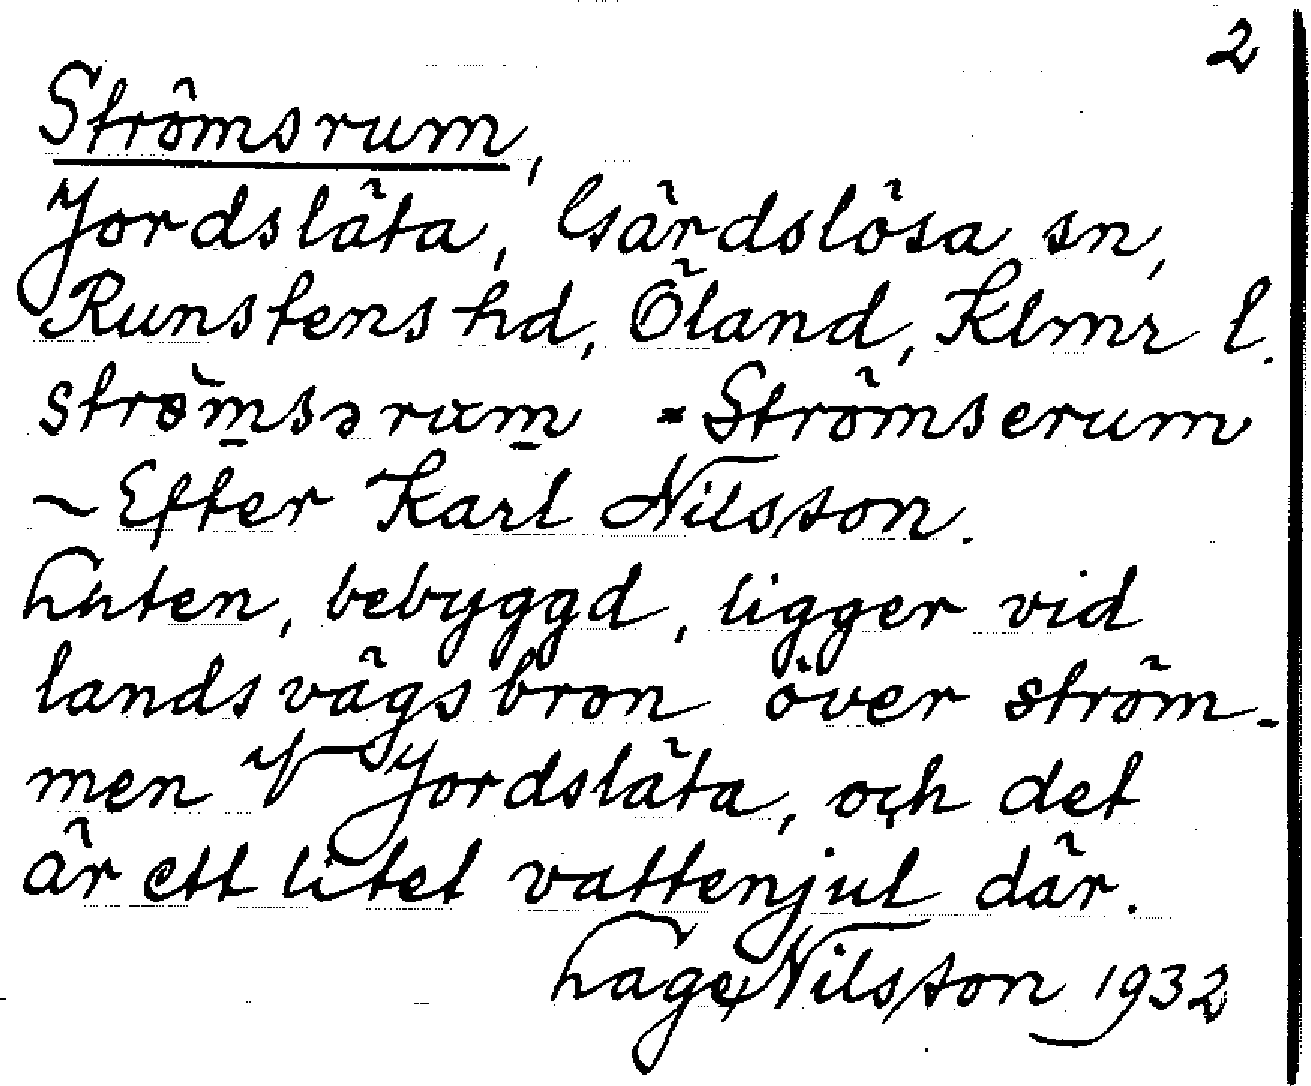 2
Strömsrum,
Jordsläta, Gärdslösa sn,
Runstens hd, Öland, Klmr l.
strò̈m̲sərɯm̲ = Strömserum
~ Efter Karl Nilsson.
Enten, bebyggd, ligger vid
landsvägsbron över ström-
men V Jordsläta, och det
är ett litet vattenjul där.
Lage Nilsson 1932